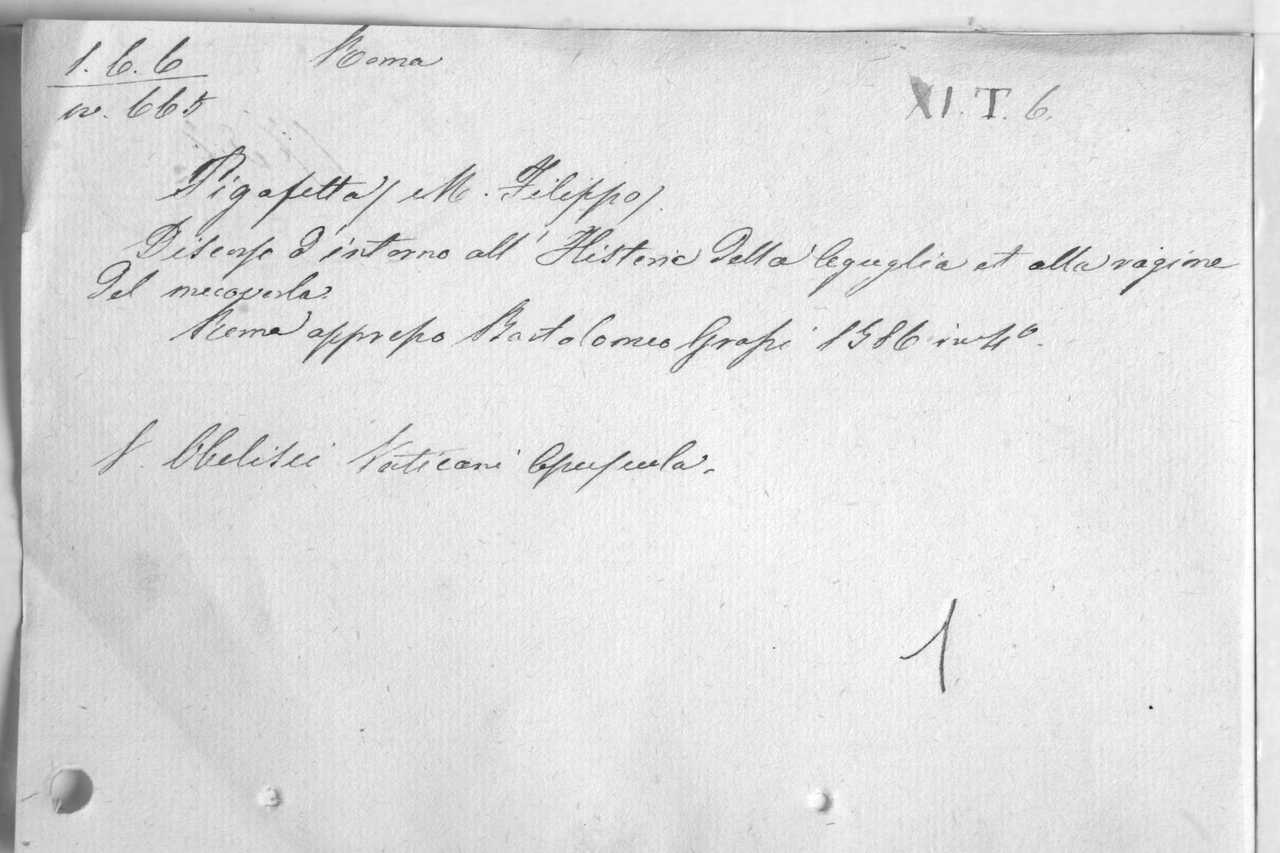 1. 6. 6
Roma
XI. T. 6.
nr. 665
Pigafetta/ M. Filippo/
Discorso d'intorno all' Historia della Aguglia et alla ragione
del muoverla.
Roma appresso Bartolomeo Grassi 1586 in 4°.
V. Obelisci Vaticani Opuscula.
1